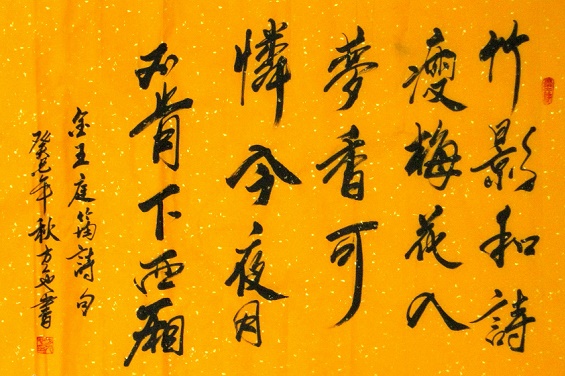 竹影和詩
瘦梅花入
夢香可
憐今夜月
不肯下西廂
金王庭筠詩句
癸巳年秋方屯書